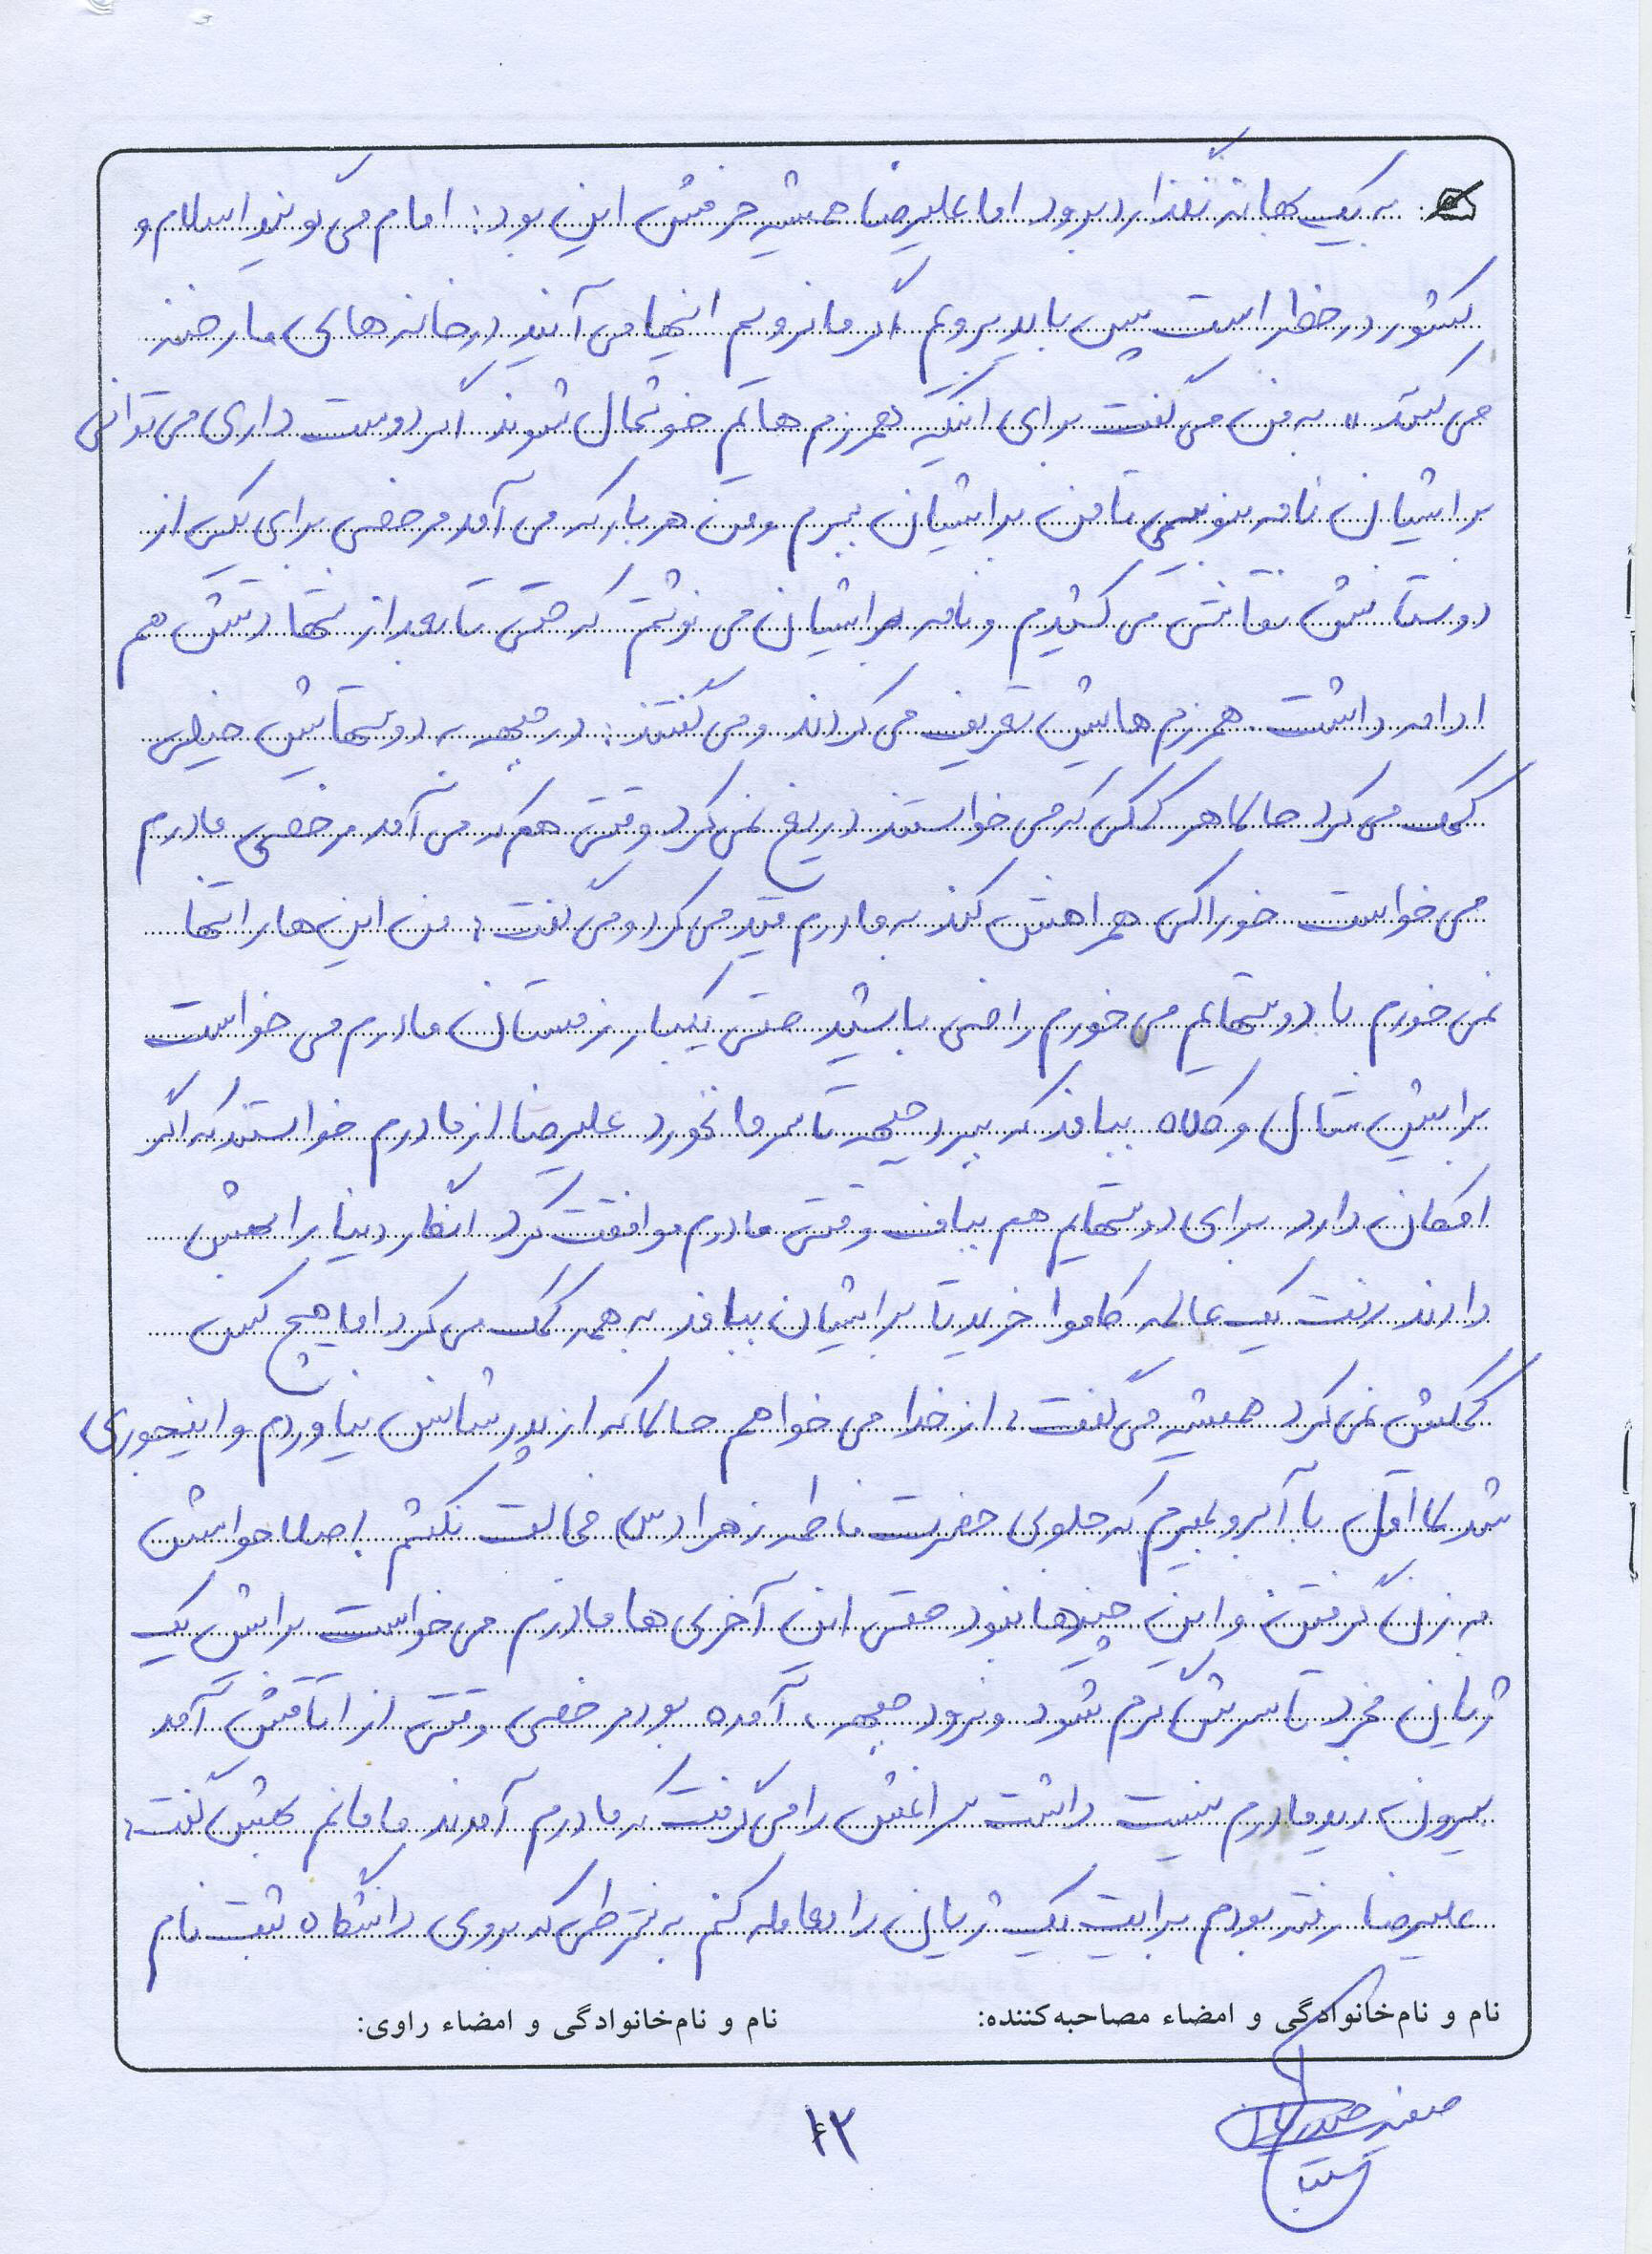 به یک بهانه نگذارد برود اما علیرضا همیشه حرفش این بود: امام می گویند اسلام و
کشور در خطر است پس باید برویم اگر ما نرویم اینها می آیند در خانه های ما رخنه
می کنند" به من می گفت برای اینکه همرزم هایم خوشحال شوند اگر دوست داری می توانی
برایشان نامه بنویسی تا من برایشان ببرم و من هر بار که می آمد مرخصی برای یکی از
دوستانش نقاشی می کشیدم و نامه برایشان می نوشتم که حتی تا بعد از شهادتش هم
ادامه داشت. همرزم هایش تعریف می کردند و می گفتند: در جبهه به دوستهایش خیلی
کمک می کرد حالا هر کمکی که می خواستند دریغ نمی کرد وقتی هم که می آمد مرخصی مادرم
می خواست خوراکی همراهش کند به مادرم قید می کرد و می گفت: من این ها را تنها
نمی خورم با دوستهایم می خورم راضی باشید حتی یکبار زمستان مادرم می خواست
برایش شال و کلاه ببافد که ببرد جبهه تا سرما نخورد علیرضا از مادرم خواستند که اگر
امکان دارد برای دوستهایم هم بباف وقتی مادرم موافقت کرد انگار دنیا را بهش
دادند رفت یک عالمه کاموا خرید تا برایشان ببافد به همه کمک می کرد اما هیچ کس
کمکش نمی کرد همیشه می گفت: از خدا می خواهم حالا که از پدر شانس نیاوردم و اینجوری
شد لااقل با آبرو بمیرم که جلوی حضرت فاطمه زهرا (س) خجالت نکشم اصلا حواسش
به زن گرفتن و این چیزها نبود حتی این آخری ها مادرم می خواست برایش یک
ژیان بخرد تا سرش گرم شود و نرود جبهه، آمده بود مرخصی وقتی از اتاقش آمد
بیرون دید مادرم نیست داشت سراغش را می گرفت که مادرم آمدند مامانم بهش گفت:
علیرضا رفته بودم برایت یک ژیان را معامله کنم به شرطی که بروی دانشگاه ثبت نام
نام و نام‌خانوادگی و امضاء مصاحبه‌کننده:
نام و نام‌خانوادگی و امضاء راوی:
۱۲